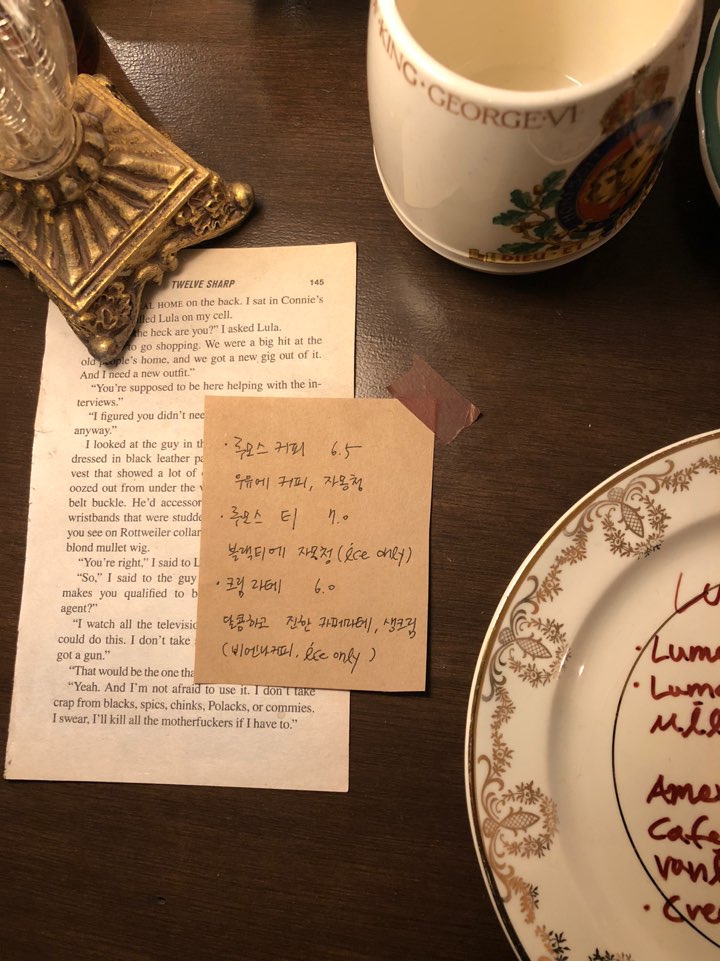 KING·GEORGE·VI
DIEU
TWELVE SHARP 145
HOME on the back. I sat in Connie's
Lula on my cell.
the heck are you?" I asked Lula.
to go shopping. We were a big hit at the
old people's home, and we got a new gig out of it.
And I need a new outfit."
"You're supposed to be here helping with the in-
terviews."
"I figured you didn't
anyway."
I looked at the guy in
dressed in black leather
vest that showed a lot of
oozed out from under the
belt buckle. He'd
wristbands that were
you see on Rottweiler
blond mullet wig.
"You're right," I said to
"So," I said to the guy
makes you qualified to
agent?"
"I watch all the
could do this. I don't take
got a gun."
"That would be the one
"Yeah. And I'm not afraid to use it. I don't take
crap from blacks, spics, chinks, Polacks, or commies.
I swear, I'll kill all the motherfuckers if I have to."
· 루모스 커피 6.5
우유에 커피, 자몽청
· 루모스 티 7.0
블랙티에 자몽청 (ice only)
· 크림 라떼 6.0
달콤하고 진한 카페라떼, 생크림
(비엔나커피, ice only)